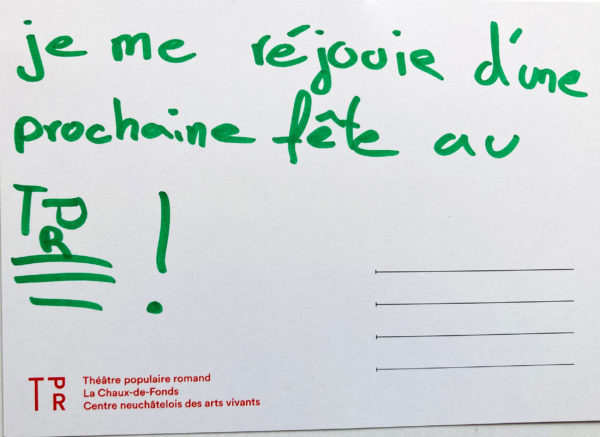 je me réjouie d'une
prochaine fête au
TPR !
TPR
Théâtre populaire romand
La Chaux-de-Fonds
Centre neuchâtelois des arts vivants